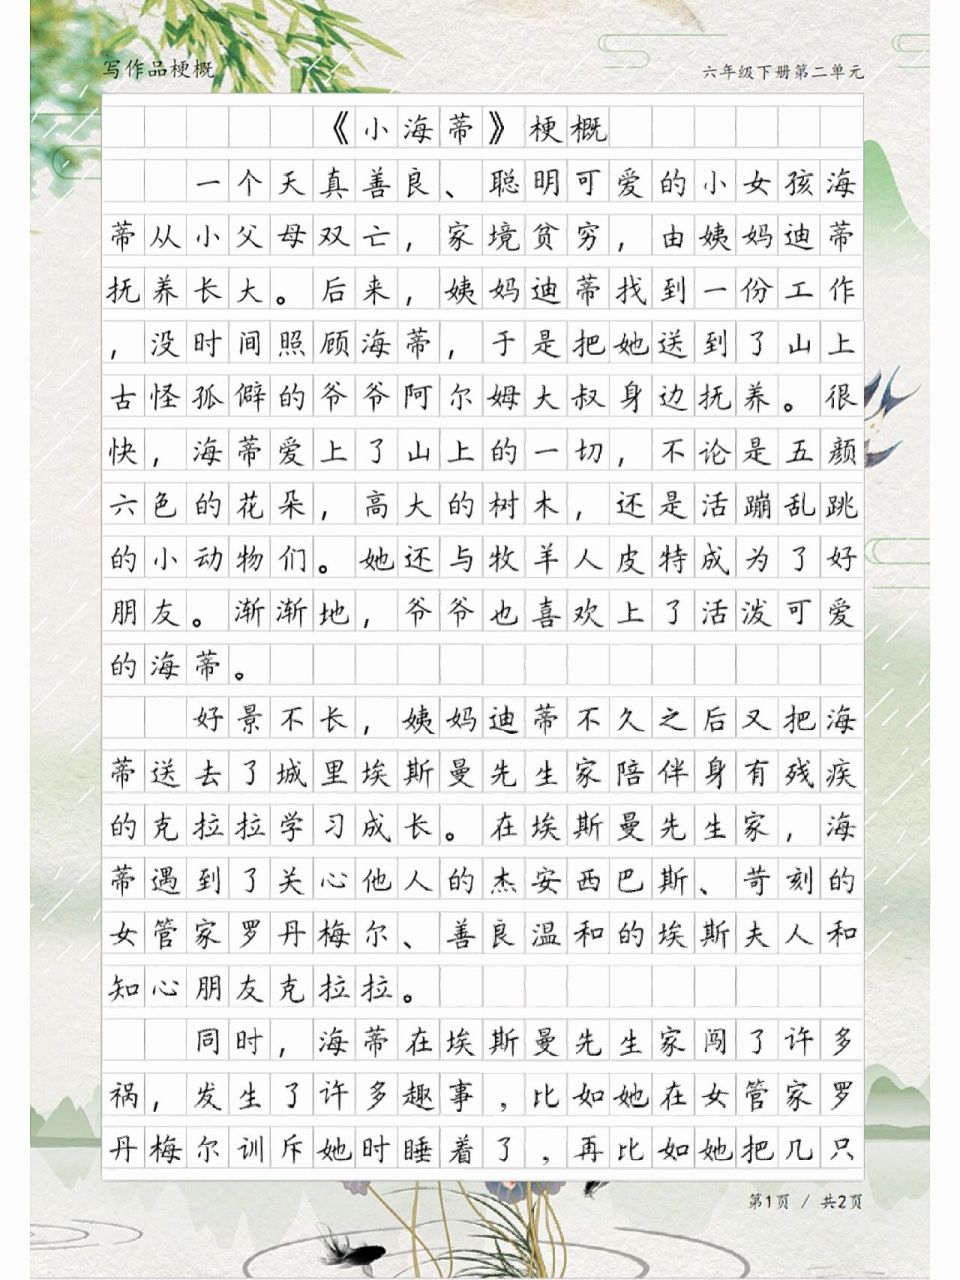 写作品梗概
六年级下册第二单元
《小海蒂》梗概
一个天真善良、聪明可爱的小女孩海
蒂从小父母双亡，家境贫穷，由姨妈迪蒂
抚养长大。后来，姨妈迪蒂找到一份工作
，没时间照顾海蒂，于是把她送到了山上
古怪孤僻的爷爷阿尔姆大叔身边抚养。很
快，海蒂爱上了山上的一切，不论是五颜
六色的花朵，高大的树木，还是活蹦乱跳
的小动物们。她还与牧羊人皮特成为了好
朋友。渐渐地，爷爷也喜欢上了活泼可爱
的海蒂。
好景不长，姨妈迪蒂不久之后又把海
蒂送去了城里埃斯曼先生家陪伴身有残疾
的克拉拉学习成长。在埃斯曼先生家，海
蒂遇到了关心他人的杰安西巴斯、苛刻的
女管家罗丹梅尔、善良温和的埃斯夫人和
知心朋友克拉拉。
同时，海蒂在埃斯曼先生家闯了许多
祸，发生了许多趣事，比如她在女管家罗
丹梅尔训斥她时睡着了，再比如她把几只
第1页 / 共2页